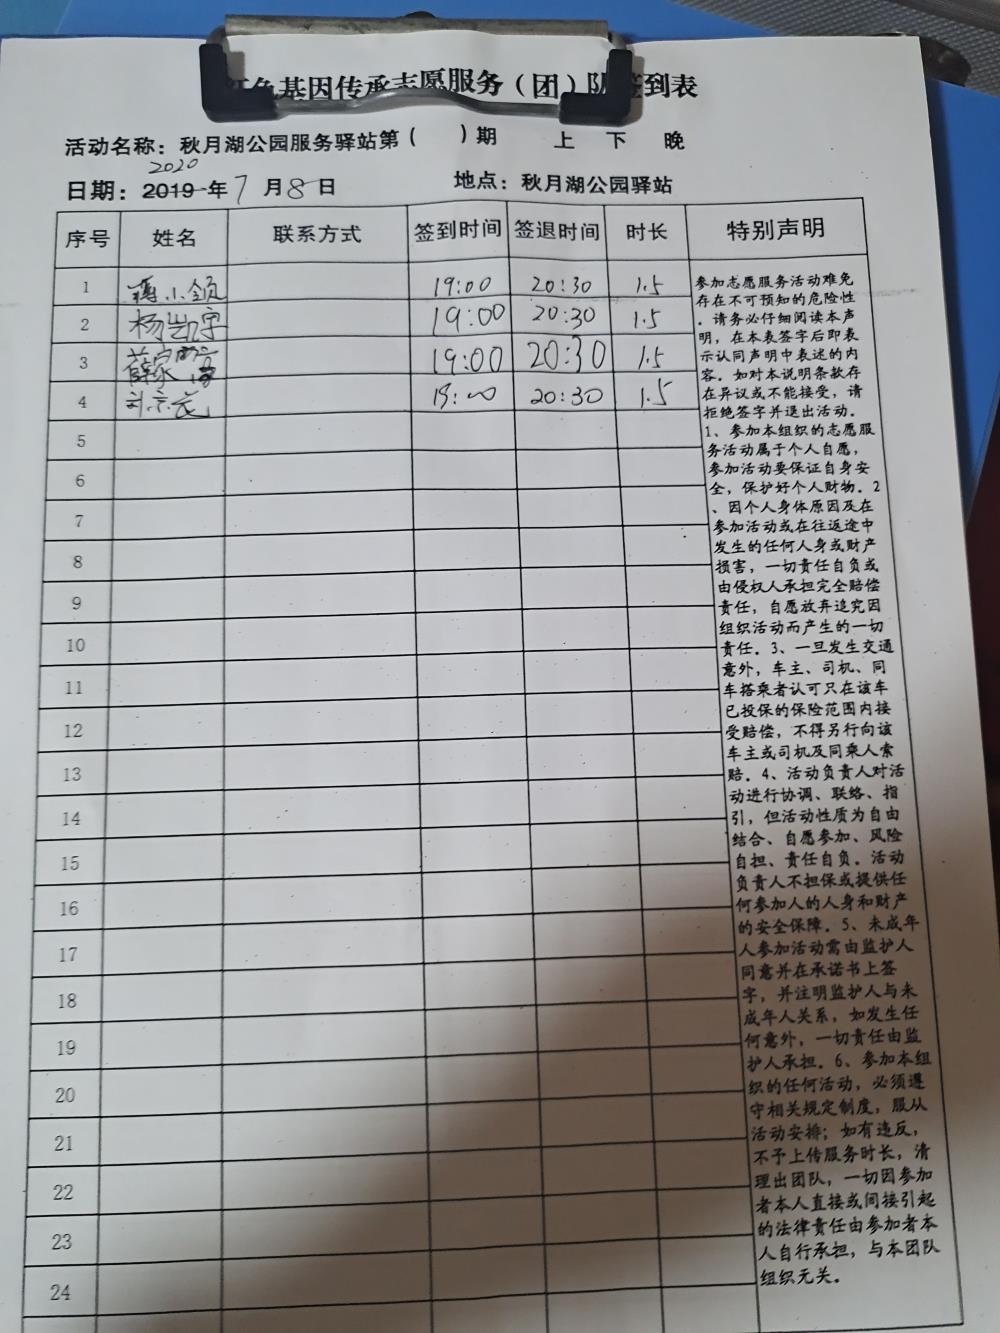 红色基因传承志愿服务（团）队签到表
活动名称：秋月湖公园服务驿站第（ ）期 上 下 晚
2020
日期：2019年7月8日 地点：秋月湖公园驿站
序号 姓名 联系方式 签到时间 签退时间 时长 特别声明
1 小领 19:00 20:30 1.5
2 杨凯宇 19:00 20:30 1.5
3 薛家 19:00 20:30 1.5
4 刘 19:00 20:30 1.5
5
6
7
8
9
10
11
12
13
14
15
16
17
18
19
20
21
22
23
24
参加志愿服务活动难免
存在不可预知的危险性
，请务必仔细阅读本声
明，在本表签字后即表
示认同声明中表述的内
容。如对本说明条款存
在异议或不能接受，请
拒绝签字并退出活动。
1、参加本组织的志愿服
务活动属于个人自愿，
参加活动要保证自身安
全，保护好个人财物。2
、因个人身体原因及在
参加活动或在往返途中
发生的任何人身或财产
损害，一切责任自负或
由侵权人承担完全赔偿
责任，自愿放弃追究因
组织活动而产生的一切
责任。3、一旦发生交通
意外，车主、司机、同
车搭乘者认可只在该车
已投保的保险范围内接
受赔偿，不得另行向该
车主或司机及同乘人索
赔。4、活动负责人对活
动进行协调、联络、指
引，但活动性质为自由
结合、自愿参加、风险
自担、责任自负。活动
负责人不担保或提供任
何参加人的人身和财产
的安全保障。5、未成年
人参加活动需由监护人
同意并在承诺书上签
字，并注明监护人与未
成年人关系，如发生任
何意外，一切责任由监
护人承担。6、参加本组
织的任何活动，必须遵
守相关规定制度，服从
活动安排；如有违反，
不予上传服务时长，清
理出团队，一切因参加
者本人直接或间接引起
的法律责任由参加者本
人自行承担，与本团队
组织无关。